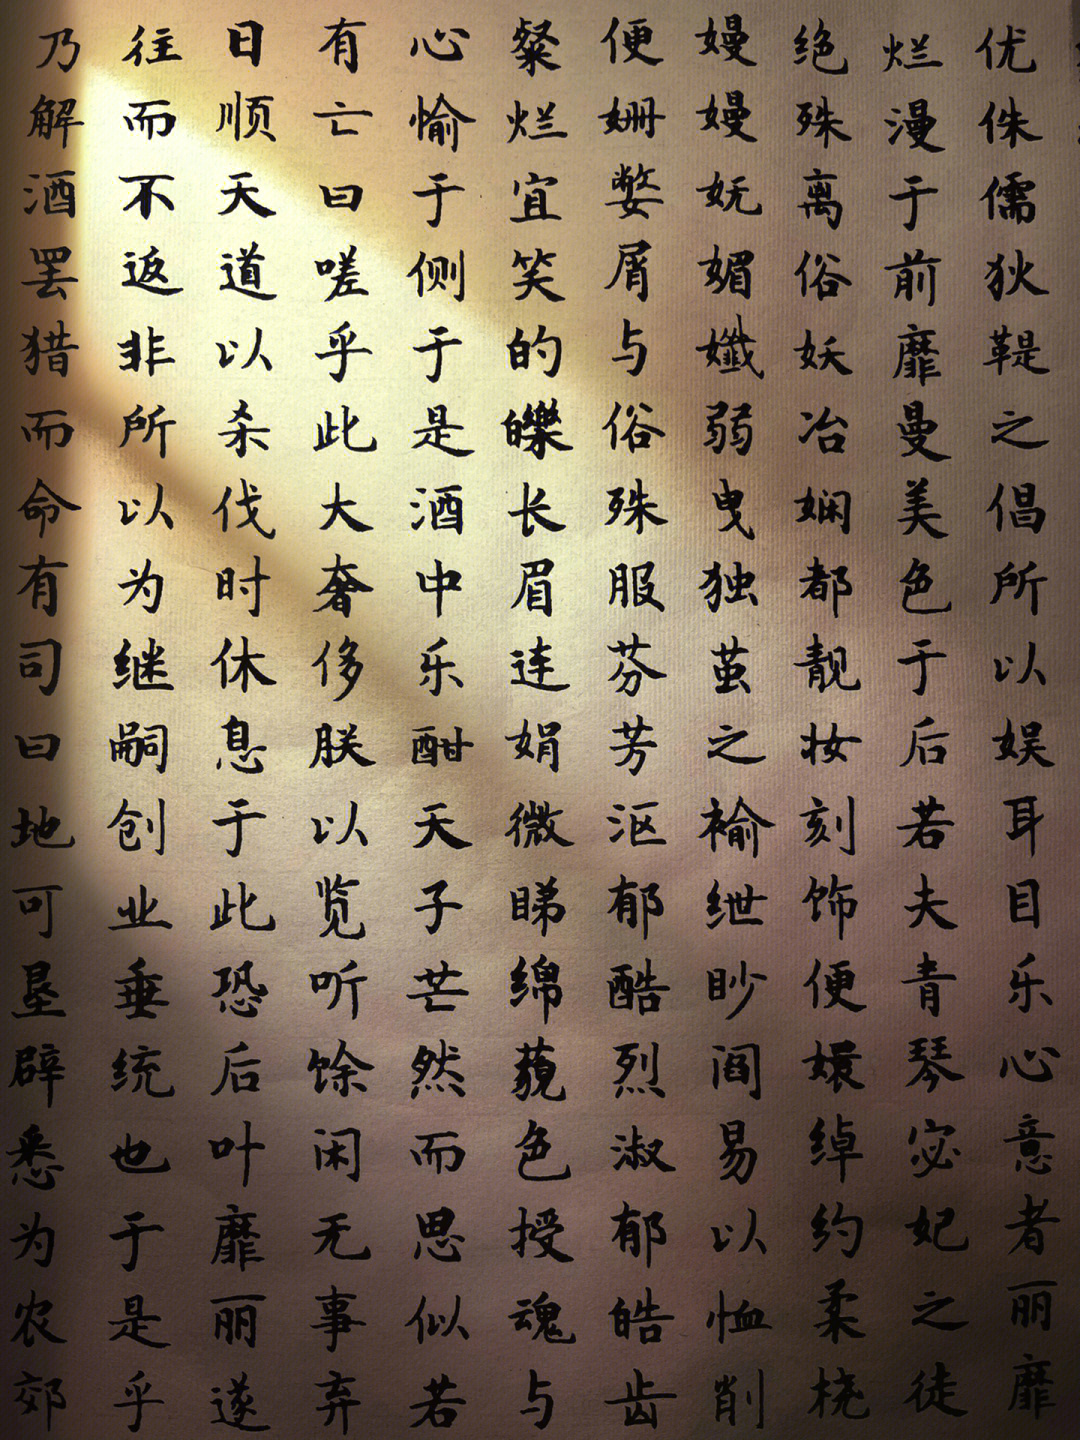 优侏儒狄鞮之倡所以娱耳目乐心意者丽靡
烂漫于前靡曼美色于后若夫青琴宓妃之徒
绝殊离俗妖冶娴都靓妆刻饰便嬛绰约柔桡
嫚嫚妩媚孅弱曳独茧之褕绁眇阎易以恤削
便姗嫳屑与俗殊服芬芳沤郁酷烈淑郁皓齿
粲烂宜笑的皪长眉连娟微睇绵藐色授魂与
心愉于侧于是酒中乐酣天子芒然而思似若
有亡曰嗟乎此大奢侈朕以览听馀闲无事弃
日顺天道以杀伐时休息于此恐后叶靡丽遂
往而不返非所以为继嗣创业垂统也于是乎
乃解酒罢猎而命有司曰地可垦辟悉为农郊